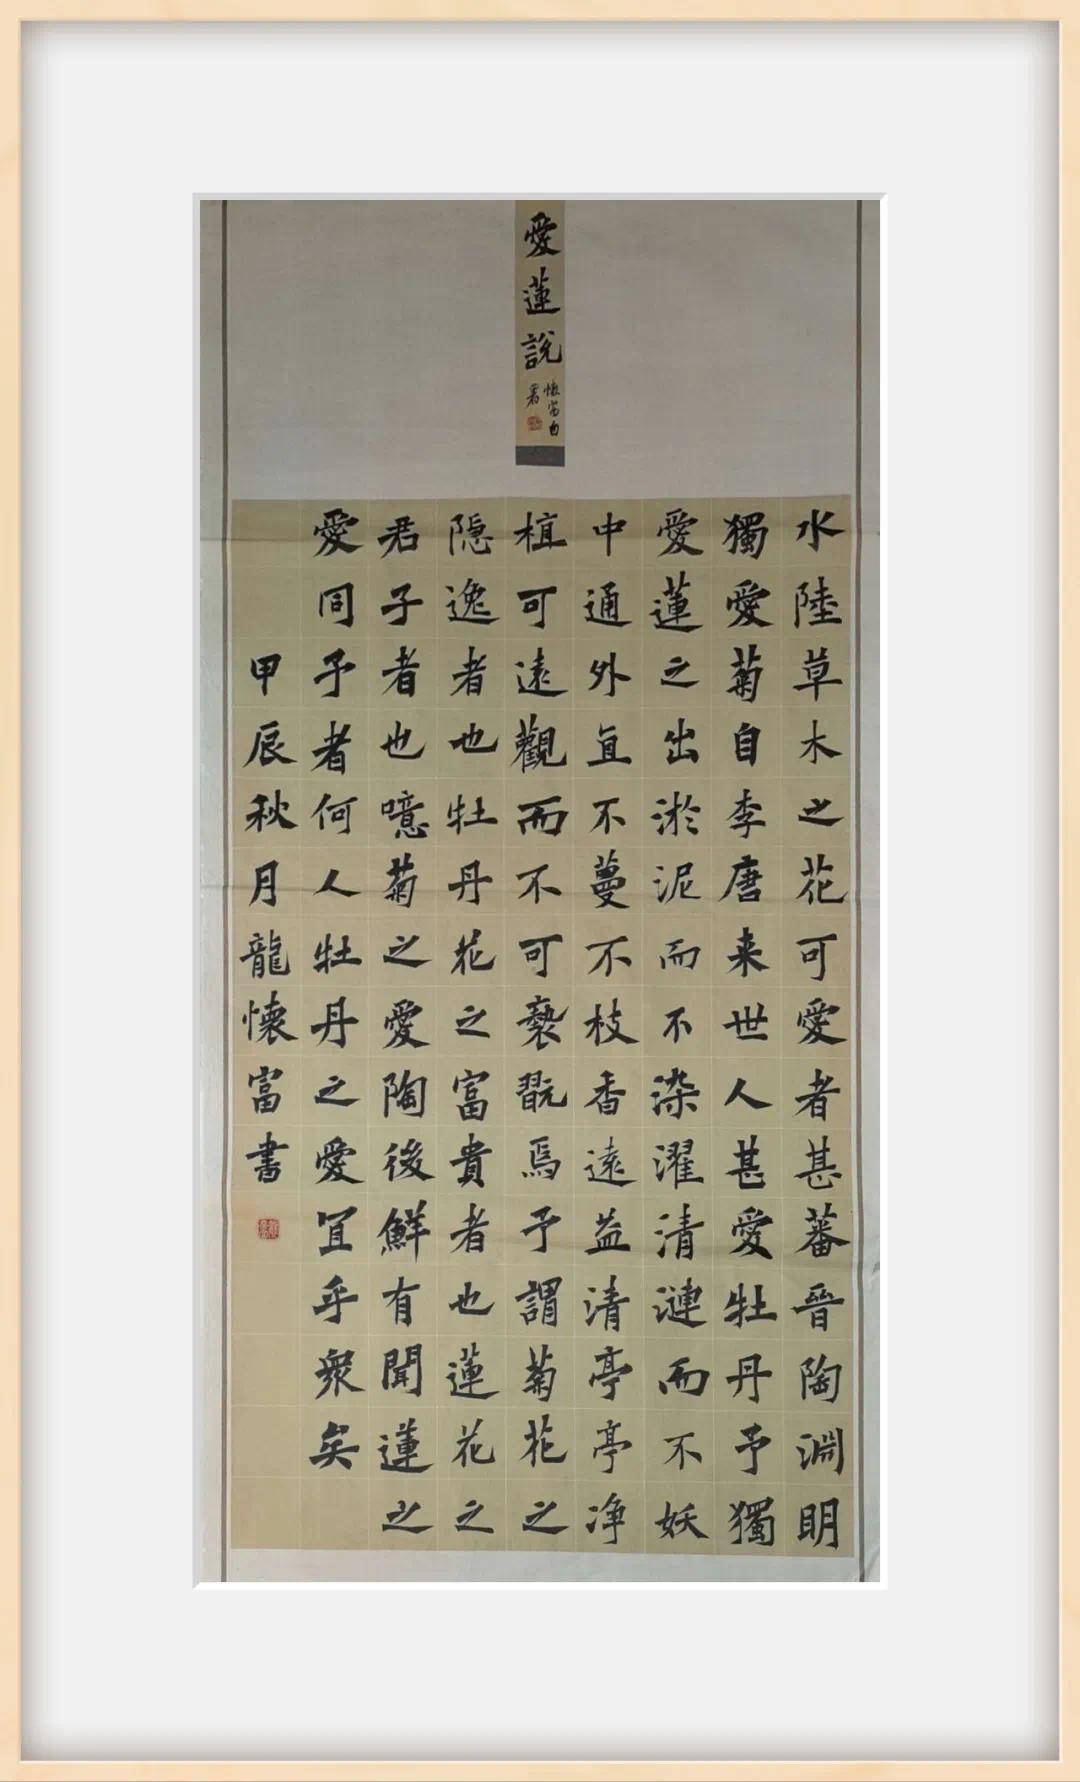 愛蓮說
懷富自
署
水陸草木之花可愛者甚蕃晉陶淵明
獨愛菊自李唐来世人甚愛牡丹予獨
愛蓮之出淤泥而不染濯清漣而不妖
中通外直不蔓不枝香遠益清亭亭净
植可遠觀而不可褻翫焉予謂菊花之
隱逸者也牡丹花之富貴者也蓮花之
君子者也噫菊之愛陶後鮮有聞蓮之
愛同予者何人牡丹之愛宜乎衆矣
甲辰秋月龍懷富書